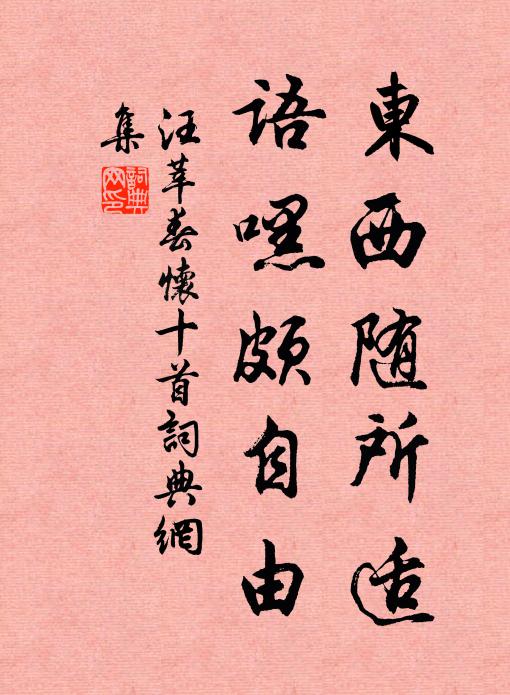 東西随所适
語嘿頗自由
汪莘春懷十首詞典網
集
詞典
网印